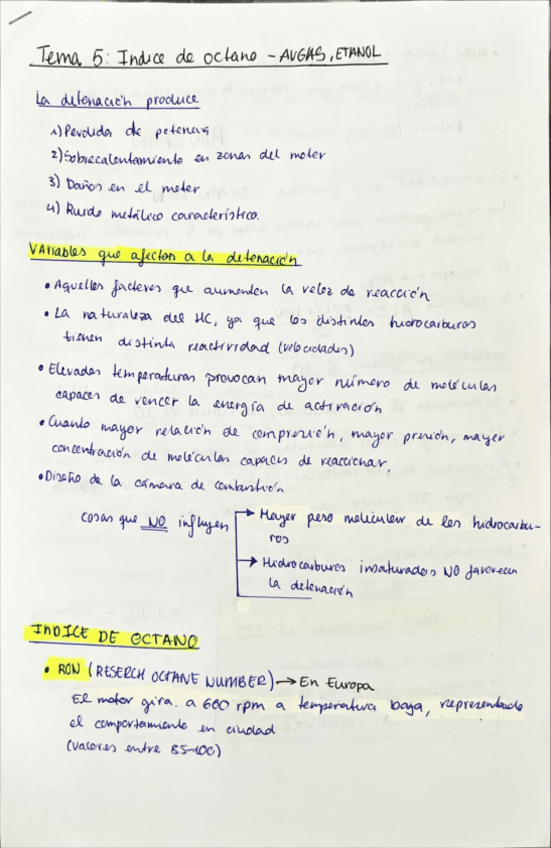 Tema 5: Indice de octano - AVGAS, ETANOL
La detonación produce
1) Perdida de potencia
2) Sobrecalentamiento en zonas del motor
3) Daños en el motor
4) Ruido metálico característico.
Variables que afectan a la detonación
• Aquellos factores que aumenten la veloc de reacción
• La naturaleza del HC, ya que los distintos hidrocarburos
tienen distinta reactividad (velocidades)
• Elevadas temperaturas provocan mayor número de moléculas
capaces de vencer la energía de activación
• Cuanto mayor relación de compresión, mayor presión, mayor
concentración de moléculas capaces de reaccionar.
• Diseño de la cámara de combustión
cosas que NO influyen
→ Mayor peso molecular de los hidrocarbu-
ros
→ Hidrocarburos insaturados NO favorecen
la detonación
INDICE DE OCTANO
• RON (RESERCH OCTANE NUMBER) → En Europa
El motor gira a 600 rpm a temperatura baja, representando
el comportamiento en ciudad
(valores entre 85-100)